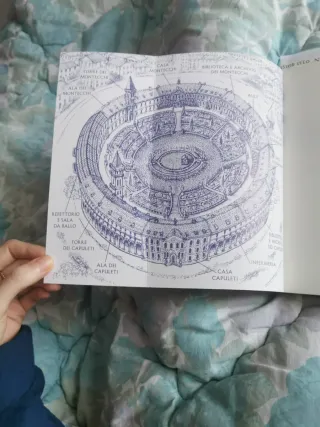 TORRE DEI
MONTECCHI
ALA DEI
MONTECCHI
CASA
MONTECCHI
BIBLIOTECA
DEI MONTECCHI
REFETTORIO
E SALA
DA BALLO
TORRE
DEI CAPULETI
ALA DEI
CAPULETI
CASA
CAPULETI